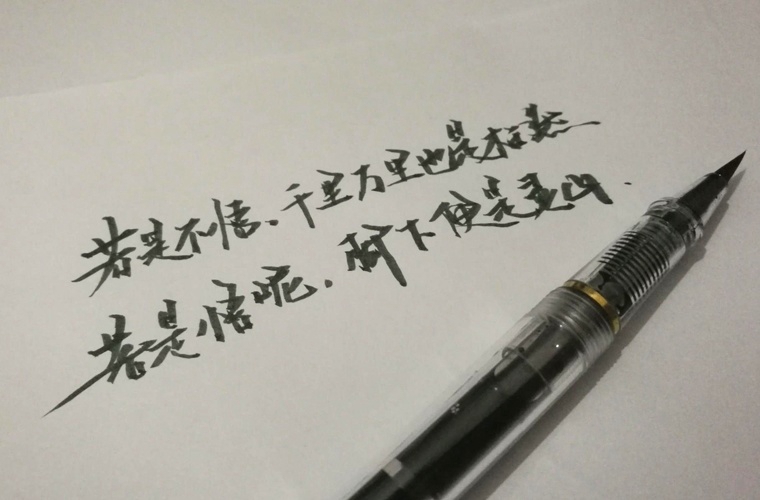 若是不悟、千里万里也是枉然
若是悟呢，脚下便是灵山．